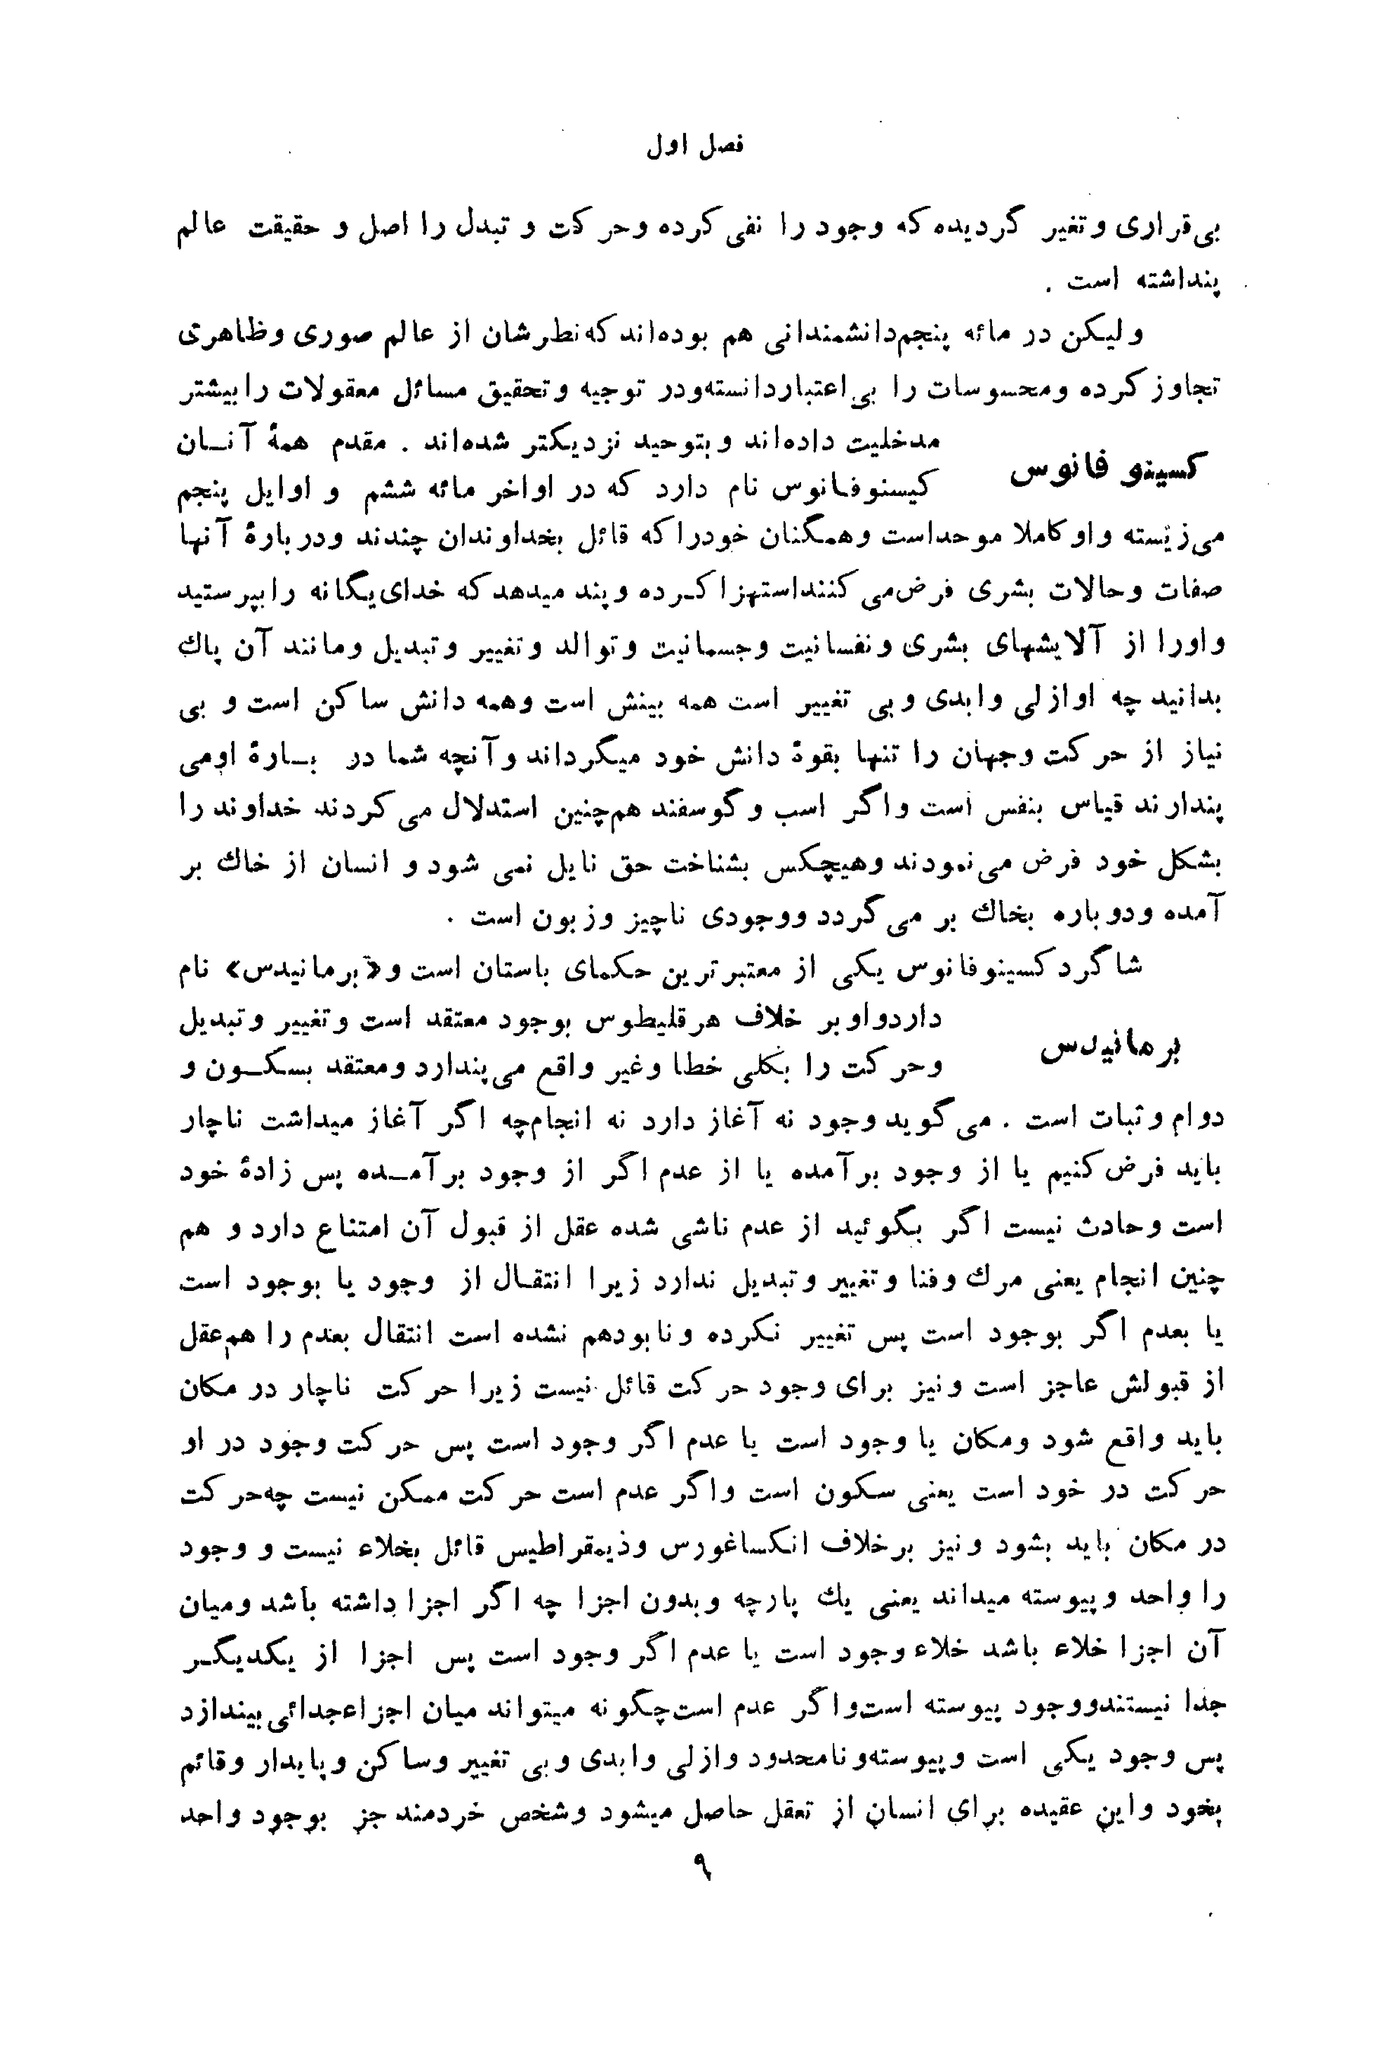 فصل اول
بی‌قراری و تغیر گردیده که وجود را نفی کرده و حرکت و تبدل را اصل و حقیقت عالم
پنداشته است .
ولیکن در مائه پنجم دانشمندانی هم بوده‌اند که نظرشان از عالم صوری و ظاهری
تجاوز کرده و محسوسات را بی‌اعتبار دانسته و در توجیه و تحقیق مسائل معقولات را بیشتر
کسینو فانوس
مدخلیت داده‌اند و بتوحید نزدیکتر شده‌اند . مقدم همهٔ آنـان
کیسنوفـانوس نام دارد که در اواخر مائه ششم و اوایل پنجم
می‌زیسته و او کاملا موحد است و همگنان خود را که قائل بخداوندان چندند و دربارهٔ آنها
صفات و حالات بشری فرض می‌کنند استهزا کـرده و پند میدهد که خدای یگانه را بپرستید
و او را از آلایشهای بشری و نفسانیت و جسمانیت و توالد و تغییر و تبدیل و مانند آن پاك
بدانید چه او ازلی و ابدی و بی تغییر است همه بینش است و همه دانش ساکن است و بی
نیاز از حرکت و جهان را تنها بقوهٔ دانش خود میگرداند و آنچه شما در بـارهٔ او می
پندارند قیاس بنفس است و اگر اسب و گوسفند هم‌چنین استدلال می‌کردند خداوند را
بشکل خود فرض می‌نمودند و هیچکس بشناخت حق نایل نمی شود و انسان از خاك بر
آمده و دوباره بخاك بر می‌گردد و وجودی ناچیز و زبون است .
شاگرد کسینوفانوس یکی از معتبرترین حکمای باستان است و «برمانیدس» نام
برمانیدس
دارد و او بر خلاف هرقلیطوس بوجود معتقد است و تغییر و تبدیل
و حرکت را بکلی خطا و غیر واقع می‌پندارد و معتقد بسکـون و
دوام و ثبات است . می‌گوید وجود نه آغاز دارد نه انجام چه اگر آغاز میداشت ناچار
باید فرض کنیم یا از وجود برآمده یا از عدم اگر از وجود برآمـده پس زادهٔ خود
است و حادث نیست اگر بگوئید از عدم ناشی شده عقل از قبول آن امتناع دارد و هم
چنین انجام یعنی مرك و فنا و تغییر و تبدیل ندارد زیرا انتقـال از وجود یا بوجود است
یا بعدم اگر بوجود است پس تغییر نکرده و نابود هم نشده است انتقال بعدم را هم عقل
از قبولش عاجز است و نیز برای وجود حرکت قائل نیست زیرا حرکت ناچار در مکان
باید واقع شود و مکان یا وجود است یا عدم اگر وجود است پس حرکت وجود در او
حرکت در خود است یعنی سکون است و اگر عدم است حرکت ممکن نیست چه حرکت
در مکان باید بشود و نیز برخلاف انکساغورس و ذیمقراطیس قائل بخلاء نیست و وجود
را واحد و پیوسته میداند یعنی یك پارچه و بدون اجزا چه اگر اجزا داشته باشد و میان
آن اجزا خلاء باشد خلاء وجود است یا عدم اگر وجود است پس اجزا از یکدیگـر
جدا نیستند و وجود پیوسته است و اگر عدم است چگونه میتواند میان اجزاء جدائی بیندازد
پس وجود یکی است و پیوسته و نامحدود و ازلی و ابدی و بی تغییر و ساکن و پایدار و قائم
بخود و این عقیده برای انسان از تعقل حاصل میشود و شخص خردمند جز بوجود واحد
۹